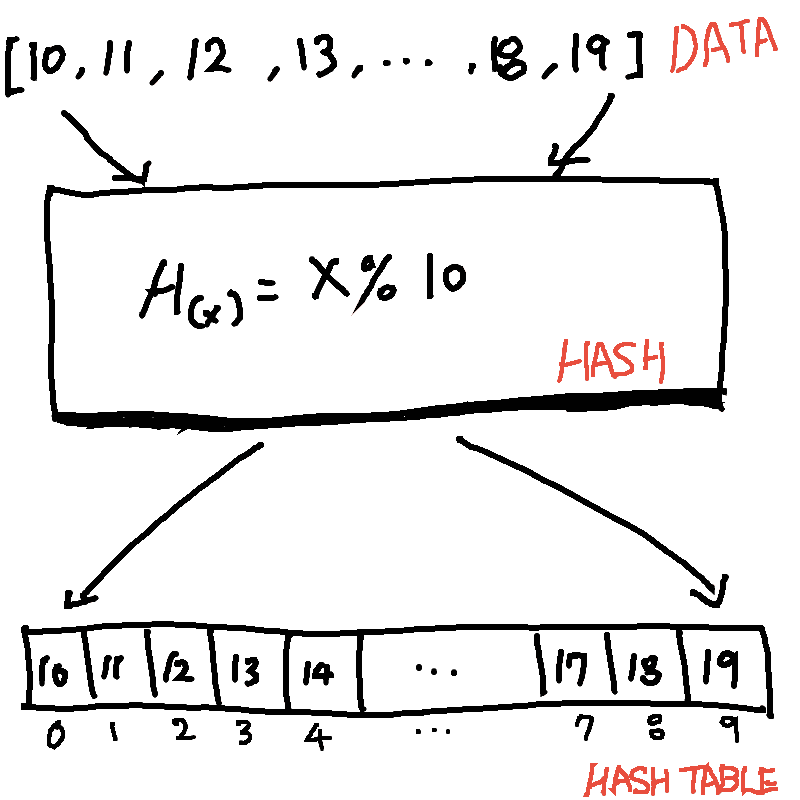 [10, 11, 12, 13, ... , 18, 19] DATA
H(x) = X % 10
HASH
10 11 12 13 14 ... 17 18 19
0 1 2 3 4 ... 7 8 9
HASH TABLE